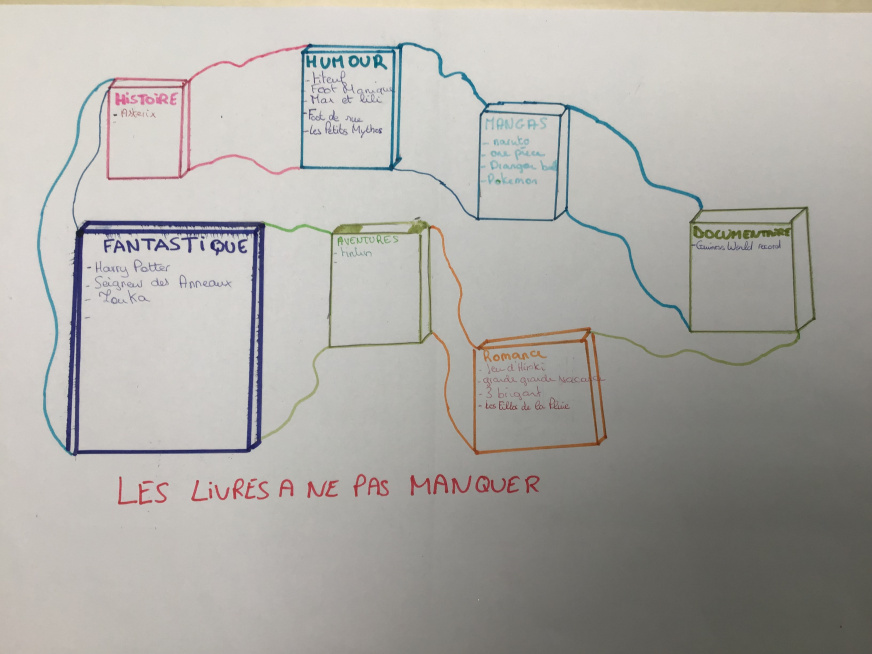 HiSTOiRE
- Asterix
HUMOUR
- titeuf
- Foot Manique
- Max et lili
Foot de rue
- Les Petits Mythos
MANGAS
- naruto
- one piece
- Drangon ball
- Pokemon
FANTASTIQUE
- Harry Potter
- Seigneur des Anneaux
- Zouka
-
AVENTURES
- tintin
-
DOCUMENTAIRE
- Guiness World record
Romance
- Jeu d'Hiroki
- grande grande
- 3 brigant
- Les Filles de la Pluie
LES LiVRES A NE PAS MANQUER